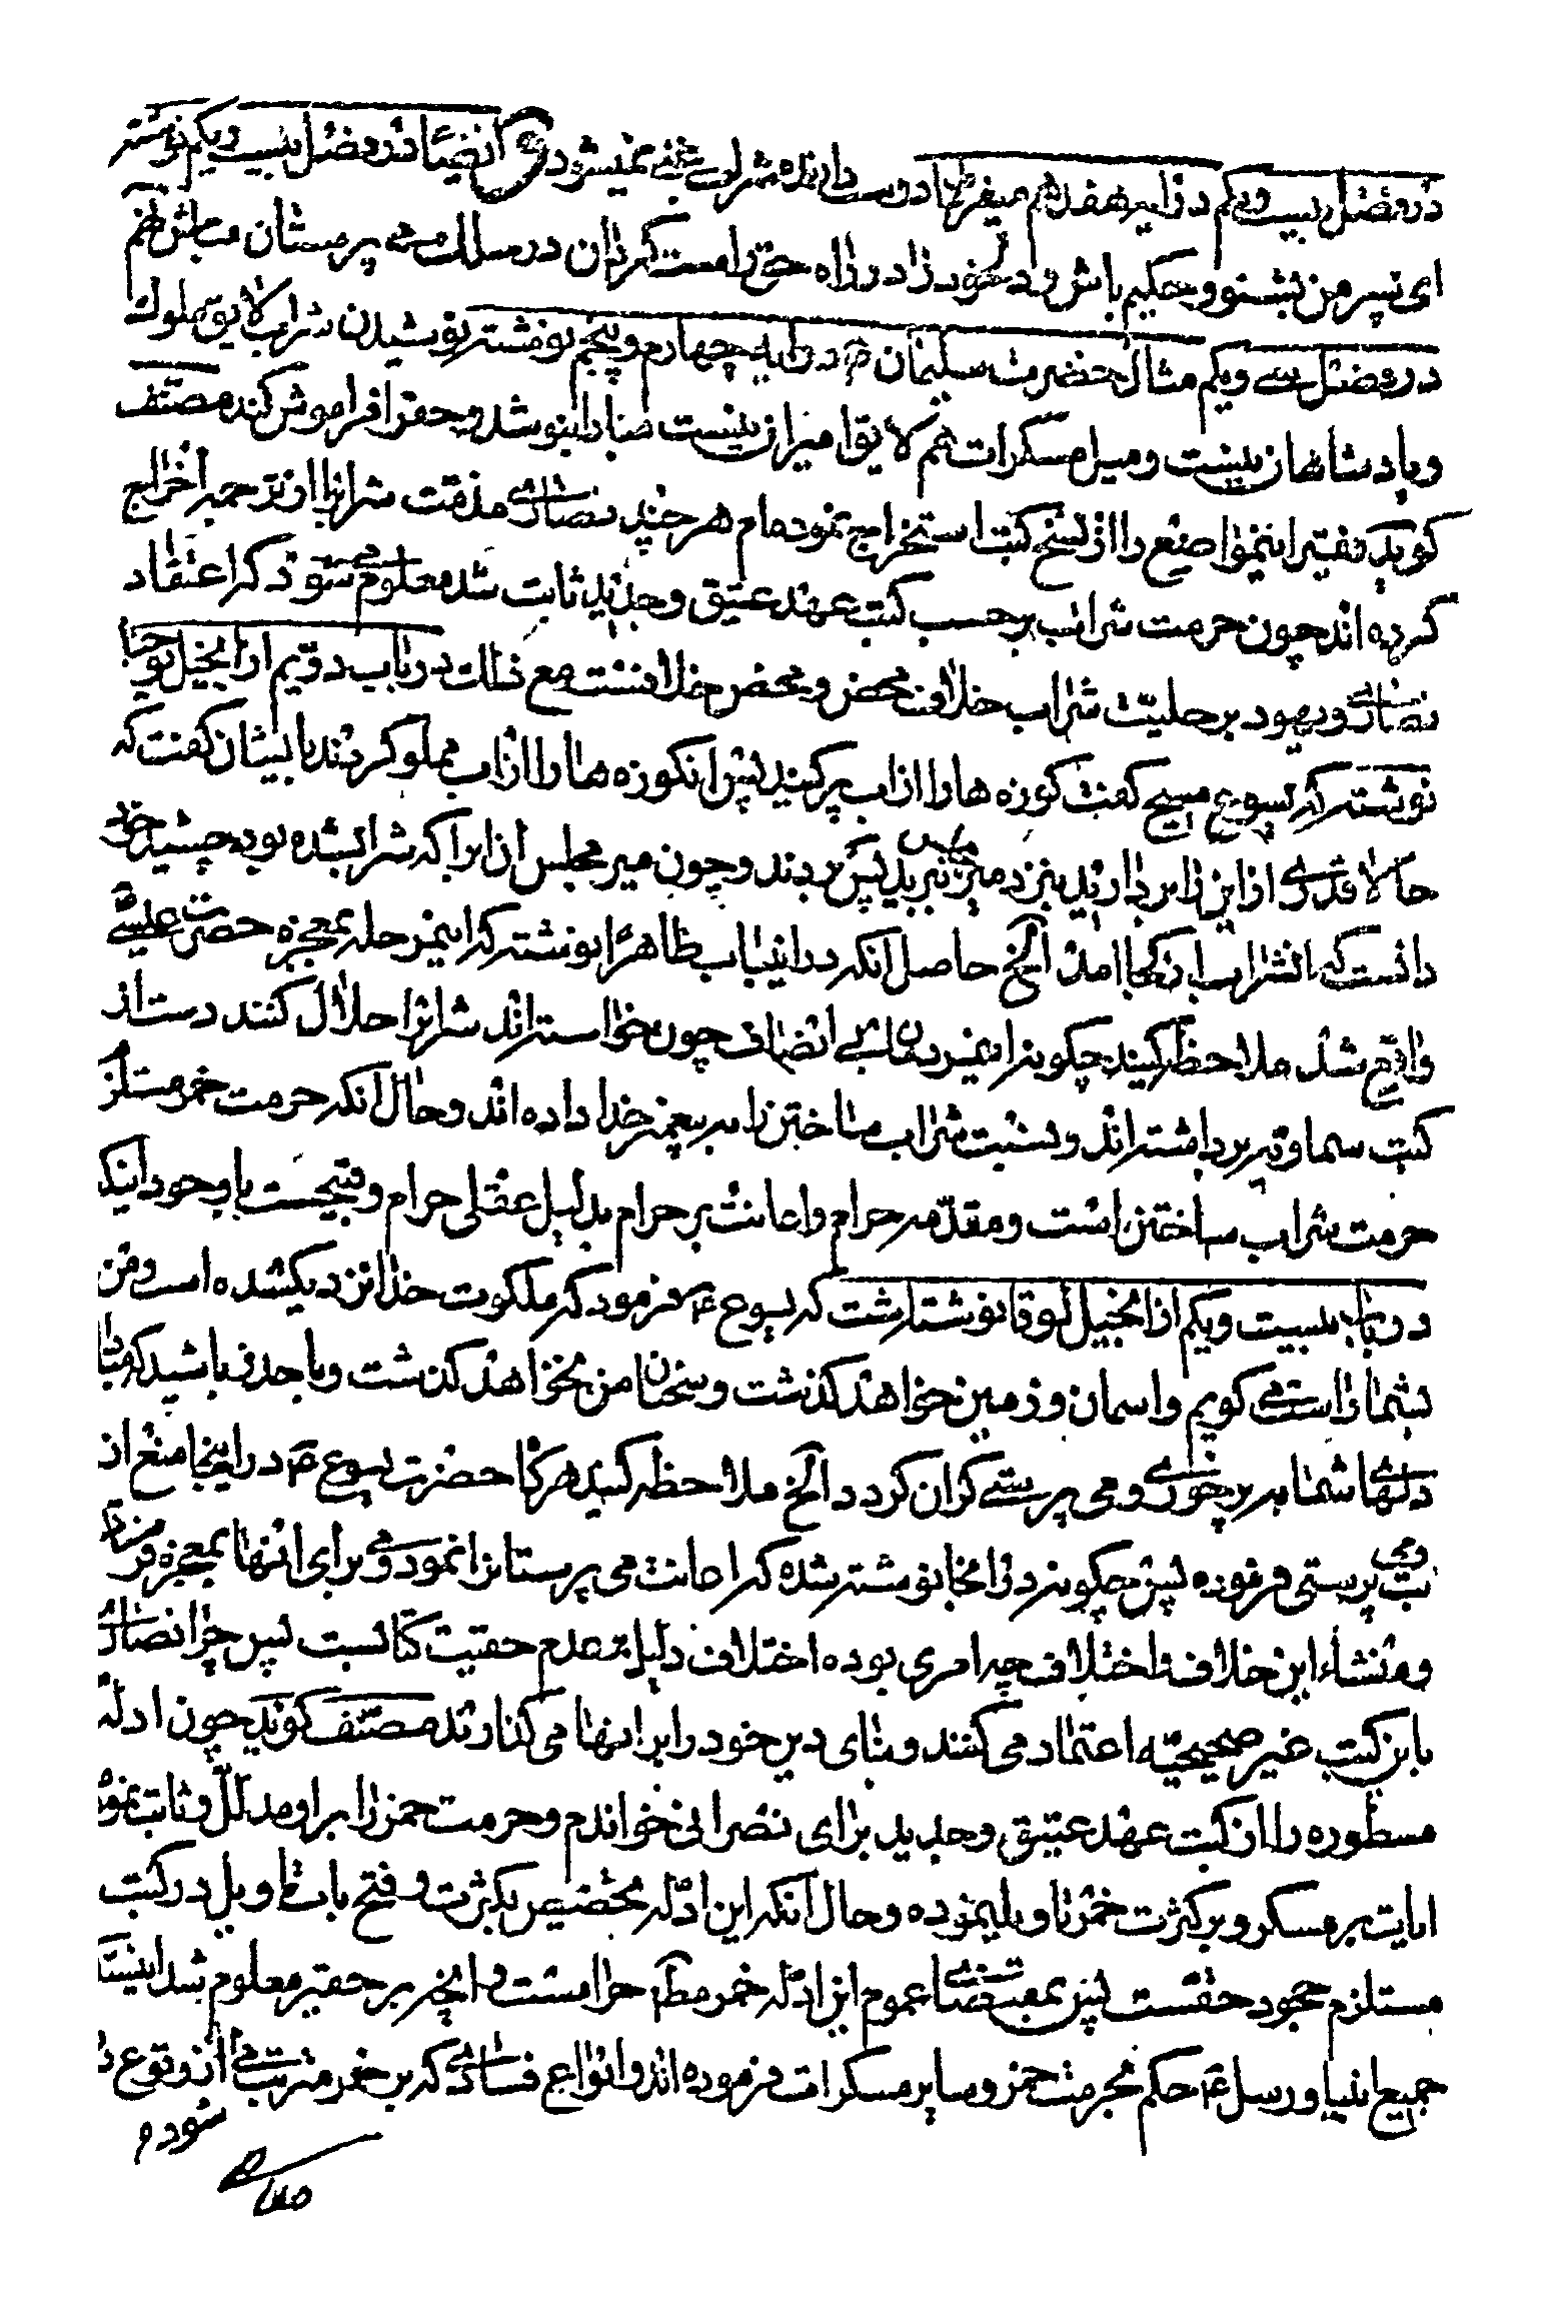 در فضل بیست ویکم در ایه هفدهم میفرماید دوست دارنده شراب غنی نمیشود و ایضا در فضل بیست ویکم نوشته
ای پسر من بشنو و حکیم باش و دل خود را در راه حق راست کردان در سلک می پرستان مباش هم
در فضل سی ویکم مثال حضرت سلیمان ع در ایه چهارم و پنجم نوشته نوشیدن شراب لایق ملوک
و پادشاهان نیست و میل مسکرات هم لایق امیران نیست مبادا بنوشند و حق را فراموش کنند مصنف
کوید فقیر اینمواضع را از نسخ کتب استخراج نموده‌ام هر چند نصاری مذمت شراب را از ترجمه اخراج
کرده اند چون حرمت شراب بر حسب کتب عهد عتیق و جدید ثابت شد معلوم می شود که اعتقاد
نصاری و یهود بر حلیت شراب خلاف محض و محض خلافست مع ذلک در باب دویم از انجیل یوحنا
نوشته که یسوع مسیح کفت کوزه ها را از اب پر کنید پس انکوزه ها را از اب مملو کردند بایشان کفت که
حالا قدری از این را بردارید بنزد میر مجلس ببرید پس بردند و چون میر مجلس ان ابرا که شراب شده بود چشید
دانست که انشراب از کجا امد الخ حاصل انکه در اینباب ظاهرا نوشته که اینمرحله بمعجزه حضرت عیسی
واقع شد ملاحظه کنید چکونه اینمردمان بی انصاف چون خواسته اند شرابرا حلال کنند دست از
کتب سماویه برداشته اند و نسبت شراب ساختن را به پیغمبر خدا داده اند و حال انکه حرمت خمر مستلزم
حرمت شراب ساختن است و مقدمه حرام و اعانت بر حرام بدلیل عقلی حرام و قبیحست باوجود اینکه
در باب بیست ویکم از انجیل لوقا نوشته است که یسوع ع فرمود که ملکوت خدا نزدیکشده است و من
بشما راست می کویم و اسمان و زمین خواهد کذشت و سخنان من نخواهد کذشت و با حذر باشید که مبادا
دلهای شما به پرخوری و می پرستی کران کردد الخ ملاحظه کنید هرکاه حضرت یسوع ع در اینجا منع از
می پرستی فرموده پس چکونه در انجا نوشته شده که اعانت می پرستانرا نمود و می برای انها بمعجزه
و منشاء این خلاف و اختلاف چه امری بوده اختلاف دلیل بر عدم حقیت کتابست پس چرا نصاری
باین کتب غیر صحیحیه اعتماد می کنند و بنای دین خود را بر انها می کذارند مصنف کوید چون ادله
مسطوره را از کتب عهد عتیق و جدید برای نصرانی خواندم و حرمت خمر را بر او مدلل و ثابت نمودم
ایات بر مسکر و بر کثرت خمر تاویل نموده و حال انکه این ادله تخصیص بکثرت و فتح باب تاویل در کتب
مستلزم جحود حقست پس بمقتضای عموم این ادله خمر مطلقا حرامست و انچه بر حقیر معلوم شد اینست
جمیع انبیا و رسل ع حکم بحرمت خمر و سایر مسکرات فرموده اند و انواع فسادی که بر خمر مترتب می
شود